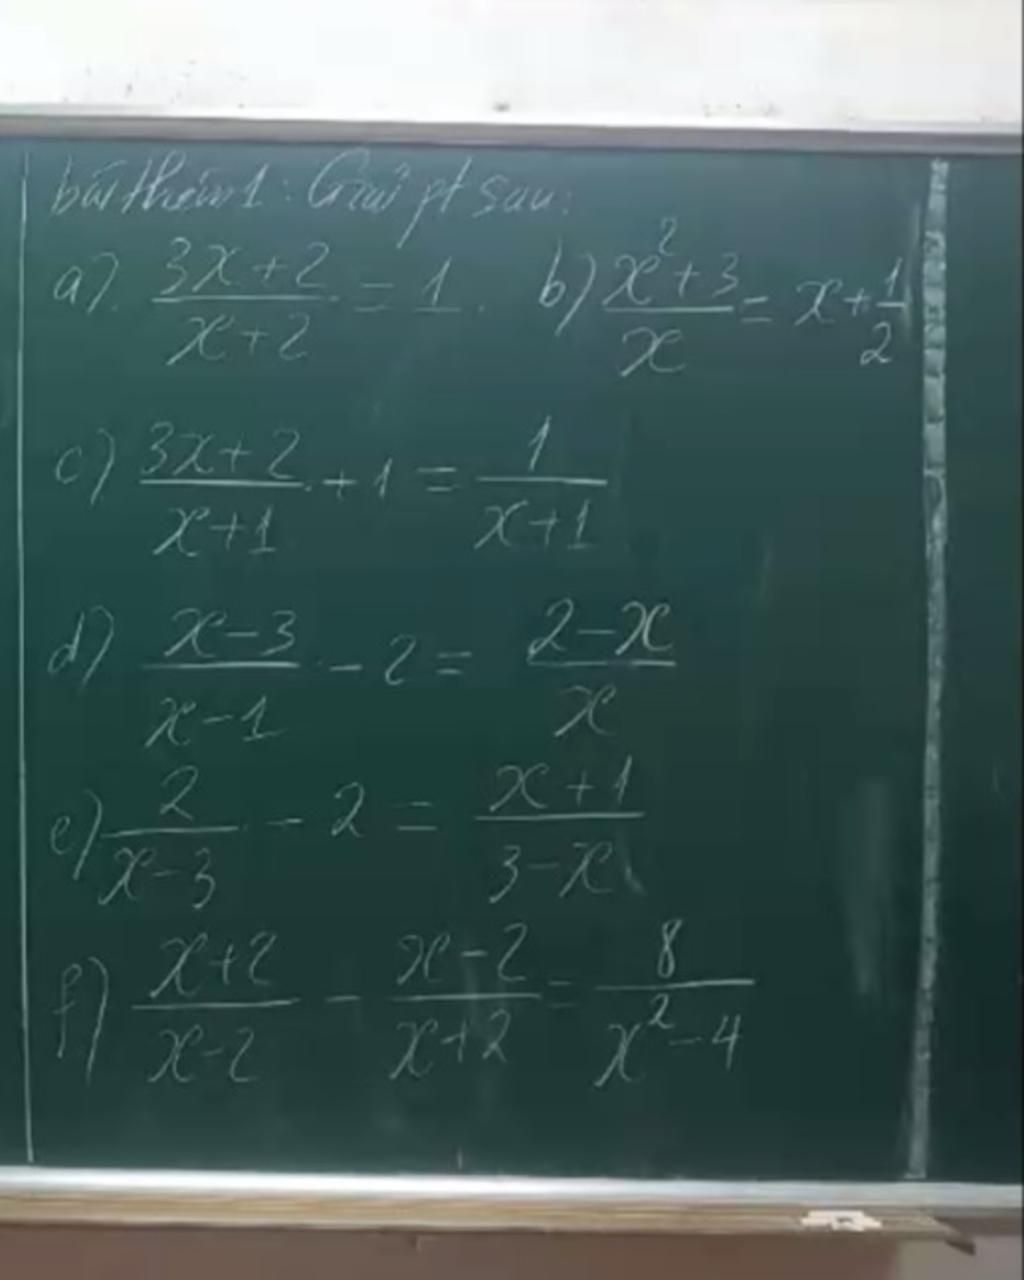 bài thêm 1: Giải pt sau:
a). (3x+2)/(x+2) = 1. b) (x²+3)/x = x + 1/2
c) (3x+2)/(x+1) + 1 = 1/(x+1)
d) (x-3)/(x-1) - 2 = (2-x)/x
e) 2/(x-3) - 2 = (x+1)/(3-x)
f) (x+2)/(x-2) - (x-2)/(x+2) = 8/(x²-4)